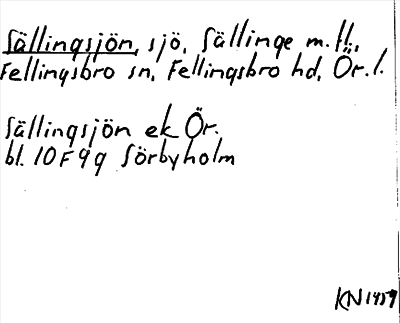 Sällingsjön, sjö, Sällinge m.fl.,
Fellingsbro sn, Fellingsbro hd, Ör. l.
Sällingsjön ek Ör.
bl. 10F9g Sörbyholm
KN 1959